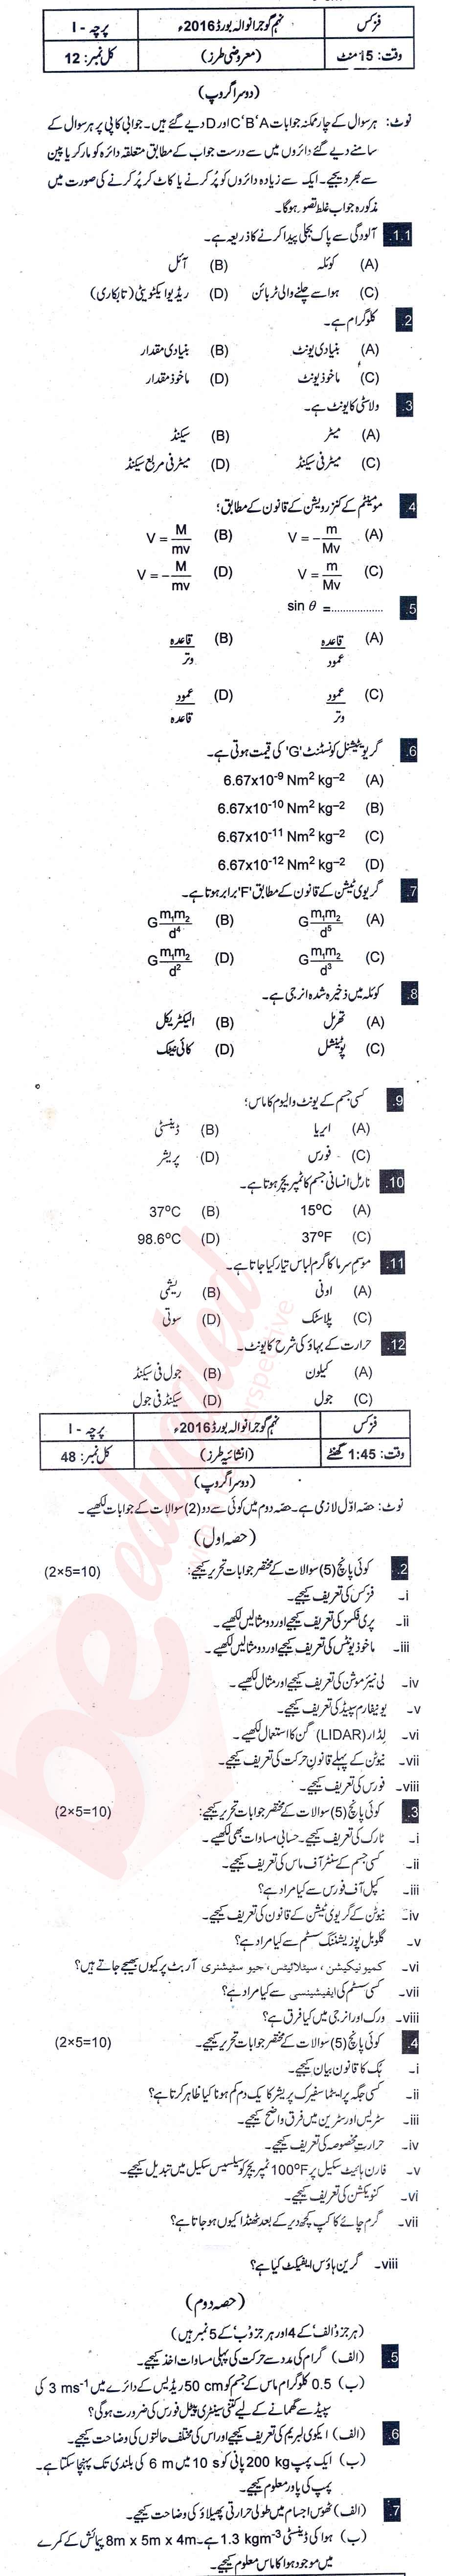 فزکس
نہم گوجرانوالہ بورڈ 2016ء
پرچہ - I
وقت: 15 منٹ
(معروضی طرز)
کل نمبر: 12
(دوسرا گروپ)
نوٹ: ہر سوال کے چار ممکنہ جوابات C'B'A اور D دیے گئے ہیں۔ جوابی کاپی پر ہر سوال کے
سامنے دیے گئے دائروں میں سے درست جواب کے مطابق متعلقہ دائرہ کو مارکر یا پین
سے بھر دیجیے۔ ایک سے زیادہ دائروں کو پُر کرنے یا کاٹ کر پُر کرنے کی صورت میں
مذکورہ جواب غلط تصور ہوگا۔
1.1. آلودگی سے پاک بجلی پیدا کرنے کا ذریعہ ہے۔
(A) کوئلہ (B) آئل
(C) ہوا سے چلنے والی ٹربائن (D) ریڈیو ایکٹویٹی (تابکاری)
2. کلوگرام ہے۔
(A) بنیادی یونٹ (B) بنیادی مقدار
(C) ماخوذ یونٹ (D) ماخوذ مقدار
3. ولاسٹی کا یونٹ ہے۔
(A) میٹر (B) سیکنڈ
(C) میٹر فی سیکنڈ (D) میٹر فی مربع سیکنڈ
4. مومینٹم کے کنزرویشن کے قانون کے مطابق؛
(A) V = -m/Mv (B) V = M/mv
(C) V = m/Mv (D) V = -M/mv
5. sin θ =.................
(A) قاعدہ/عمود (B) قاعدہ/وتر
(C) عمود/وتر (D) عمود/قاعدہ
6. گریویٹیشنل کونسٹنٹ 'G' کی قیمت ہوتی ہے۔
(A) 6.67x10⁻⁹ Nm² kg⁻²
(B) 6.67x10⁻¹⁰ Nm² kg⁻²
(C) 6.67x10⁻¹¹ Nm² kg⁻²
(D) 6.67x10⁻¹² Nm² kg⁻²
7. گریوی ٹیشن کے قانون کے مطابق 'F' برابر ہوتا ہے۔
(A) G m₁m₂/d⁵ (B) G m₁m₂/d⁴
(C) G m₁m₂/d³ (D) G m₁m₂/d²
8. کوئلہ میں ذخیرہ شدہ انرجی ہے۔
(A) تھرمل (B) الیکٹریکل
(C) پوٹینشل (D) کائی نیٹک
9. کسی جسم کے یونٹ والیوم کا ماس؛
(A) ایریا (B) ڈینسٹی
(C) فورس (D) پریشر
10. نارمل انسانی جسم کا ٹمپریچر ہوتا ہے۔
(A) 15°C (B) 37°C
(C) 37°F (D) 98.6°C
11. موسم سرما کا گرم لباس تیار کیا جاتا ہے۔
(A) اونی (B) ریشمی
(C) پلاسٹک (D) سوتی
12. حرارت کے بہاؤ کی شرح کا یونٹ۔
(A) کیلون (B) جول فی سیکنڈ
(C) جول (D) سیکنڈ فی جول
فزکس
نہم گوجرانوالہ بورڈ 2016ء
پرچہ - I
وقت: 1:45 گھنٹے
(انشائیہ طرز)
کل نمبر: 48
(دوسرا گروپ)
نوٹ: حصہ اوّل لازمی ہے۔ حصہ دوم میں کوئی سے دو (2) سوالات کے جوابات لکھیے۔
(حصہ اول)
2. کوئی پانچ (5) سوالات کے مختصر جوابات تحریر کیجیے: (2×5=10)
i- فزکس کی تعریف کیجیے۔
ii- پری فکسز کی تعریف کیجیے اور دو مثالیں لکھیے۔
iii- ماخوذ یونٹس کی تعریف کیجیے اور دو مثالیں لکھیے۔
iv- لی نیئر موشن کی تعریف کیجیے اور مثال لکھیے۔
v- یونیفارم سپیڈ کی تعریف کیجیے۔
vi- لِڈار (LIDAR) گن کا استعمال لکھیے۔
vii- نیوٹن کے پہلے قانونِ حرکت کی تعریف کیجیے۔
viii- فورس کی تعریف کیجیے۔
3. کوئی پانچ (5) سوالات کے مختصر جوابات تحریر کیجیے: (2×5=10)
i- ٹارک کی تعریف کیجیے۔ حسابی مساوات بھی لکھیے۔
ii- کسی جسم کے سنٹر آف ماس کی تعریف کیجیے۔
iii- کپل آف فورس سے کیا مراد ہے؟
iv- نیوٹن کے گریوی ٹیشن کے قانون کی تعریف کیجیے۔
v- گلوبل پوزیشننگ سسٹم سے کیا مراد ہے؟
vi- کمیونیکیشن، سیٹلائیٹس، جیو سٹیشنری آربٹ پر کیوں بھیجے جاتے ہیں؟
vii- کسی سسٹم کی ایفیشینسی سے کیا مراد ہے؟
viii- ورک اور انرجی میں کیا فرق ہے؟
4. کوئی پانچ (5) سوالات کے مختصر جوابات تحریر کیجیے۔ (2×5=10)
i- ہُک کا قانون بیان کیجیے۔
ii- کسی جگہ پر ایٹما سفیرک پریشر کا یک دم کم ہونا کیا ظاہر کرتا ہے؟
iii- سٹریس اور سٹرین میں فرق واضح کیجیے۔
iv- حرارتِ مخصوصہ کی تعریف کیجیے۔
v- فارن ہائیٹ سکیل پر 100°F ٹمپریچر کو سیلسیس سکیل میں تبدیل کیجیے۔
vi- کنویکشن کی تعریف کیجیے۔
vii- گرم چائے کا کپ کچھ دیر کے بعد ٹھنڈا کیوں ہو جاتا ہے؟
viii- گرین ہاؤس ایفیکٹ کیا ہے؟
(حصہ دوم)
(ہر جزو 'الف' کے 4 اور ہر جزو 'ب' کے 5 نمبر ہیں)
5. (الف) گرام کی مدد سے حرکت کی پہلی مساوات اخذ کیجیے۔
(ب) 0.5 کلوگرام ماس کے جسم کو 50 cm ریڈیس کے دائرے میں 3 ms⁻¹ کی
سپیڈ سے گھمانے کے لیے کتنی سینٹری پیٹل فورس کی ضرورت ہوگی؟
6. (الف) ایکوی لبریم کی تعریف کیجیے اور اس کی مختلف حالتوں کی وضاحت کیجیے۔
(ب) ایک پمپ 200 kg پانی کو 10 s میں 6 m کی بلندی تک پہنچا سکتا ہے۔
پمپ کی پاور معلوم کیجیے۔
7. (الف) ٹھوس اجسام میں طولی حرارتی پھیلاؤ کی وضاحت کیجیے۔
(ب) ہوا کی ڈینسٹی 1.3 kgm⁻³ ہے۔ 8m x 5m x 4m پیمائش کے کمرے
میں موجود ہوا کا ماس معلوم کیجیے۔